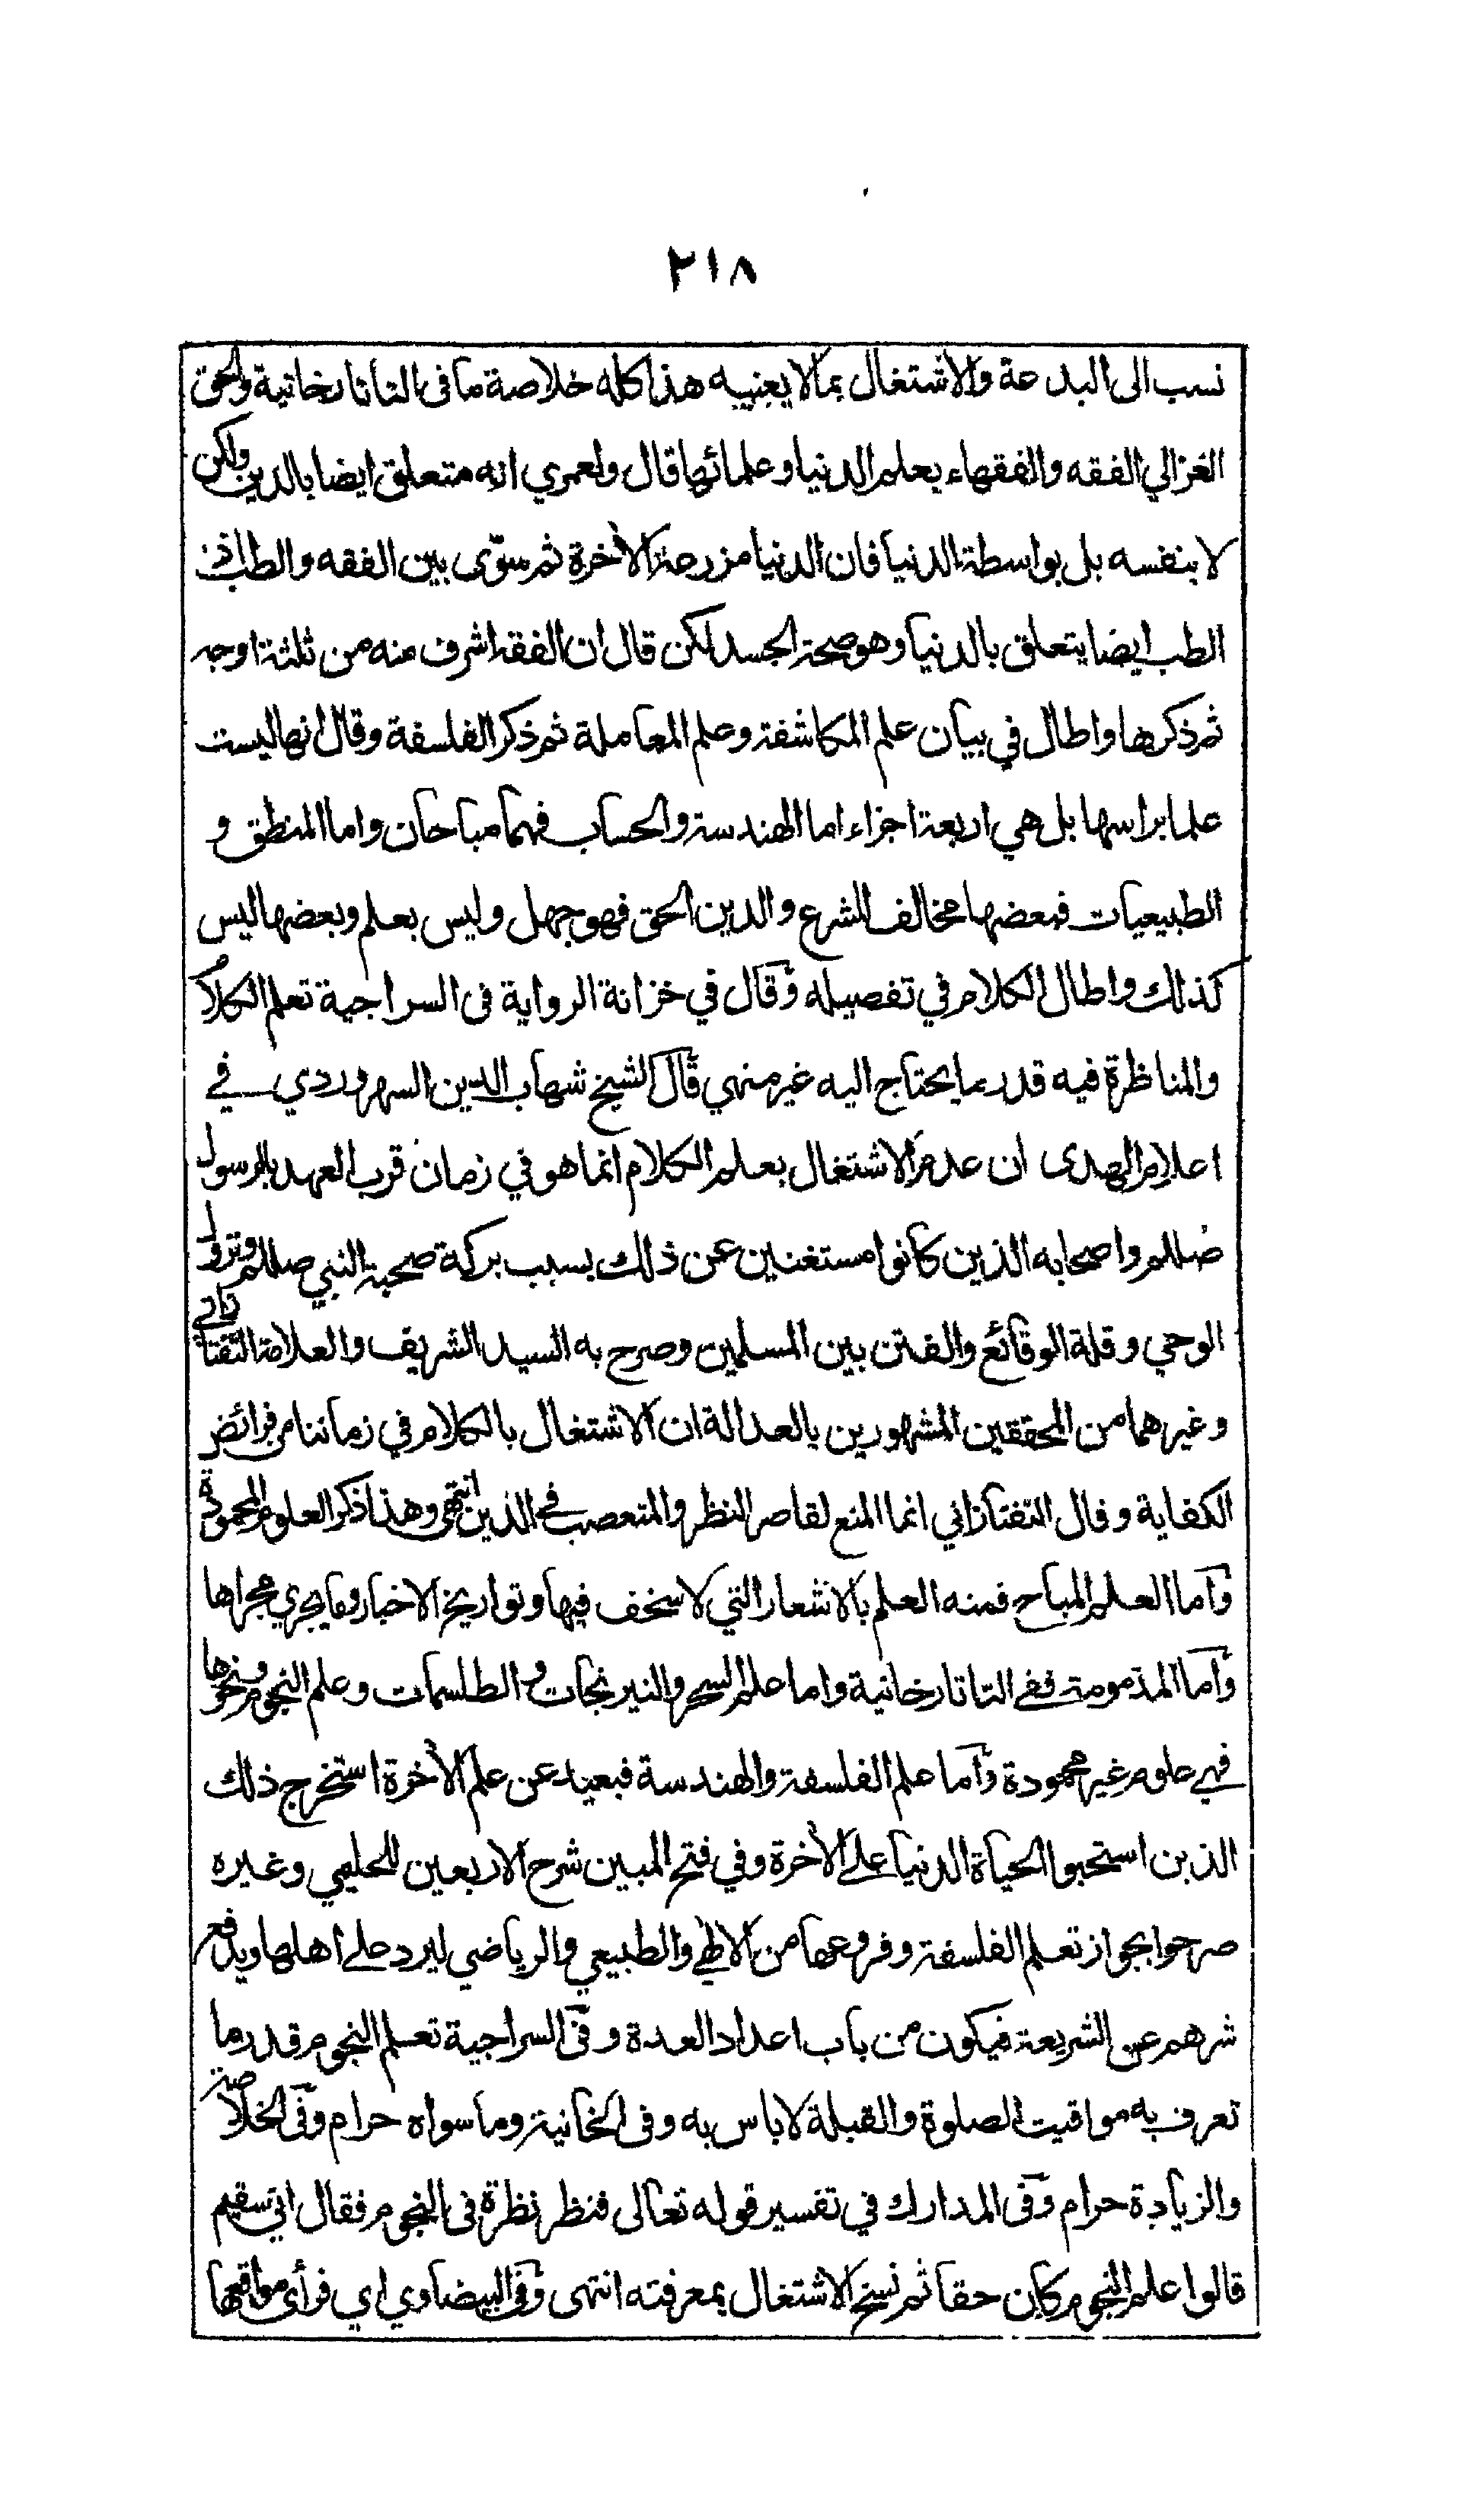 ٢١٨
نسب الى البدعة والاشتغال بما لا يعنيه هذا كله خلاصة ما في التاتارخانية والحق
الغزالي الفقه والفقهاء بعلم الدنيا وعلمائها قال ولعمري انه متعلق ايضا بالدين ولكن
لا بنفسه بل بواسطة الدنيا فان الدنيا مزرعة الآخرة ثم سوّى بين الفقه والطب اذ
الطب ايضا يتعلق بالدنيا وهو صحة الجسد لكن قال ان الفقه اشرف منه من ثلثة اوجه
ثم ذكرها واطال في بيان علم المكاشفة وعلم المعاملة ثم ذكر الفلسفة وقال انها ليست
علما براسها بل هي اربعة اجزاء اما الهندسة والحساب فهما مباحان واما المنطق و
الطبيعيات فبعضها مخالف للشرع والدين الحق فهو جهل وليس بعلم وبعضها ليس
كذلك واطال الكلام في تفصيله وقال في خزانة الرواية في السراجية تعلم الكلام
والمناظرة فيه قدر ما يحتاج اليه غير منهي قال الشيخ شهاب الدين السهروردي في
اعلام الهدى ان عدم الاشتغال بعلم الكلام انما هو في زمان قرب العهد بالرسول
صللم واصحابه الذين كانوا مستغنين عن ذلك بسبب بركة صحبة النبي صللم ونزول
الوحي وقلة الوقائع والفتن بين المسلمين وصرح به السيد الشريف والعلامة التفتازاني
وغيرهما من المحققين المشهورين بالعدالة ان الاشتغال بالكلام في زماننا من فرائض
الكفاية وقال التفتازاني انما المنع لقاصر النظر والمتعصب في الدين انتهى وهذا ذكر العلوم المحمودة
وآما العلم المباح فمنه العلم بالاشعار التي لا سخف فيها وتواريخ الاخبار وما يجري مجراها
وآما المذمومة ففي التاتارخانية واما علم السحر والنيرنجات والطلسمات وعلم النجوم ونحوها
فهي علوم غير محمودة وآما علم الفلسفة والهندسة فبعيد عن علم الآخرة استخرج ذلك
الذين استحبوا الحياة الدنيا على الآخرة وفي فتح المبين شرح الاربعين للحليمي وغيره
صرحوا بجواز تعلم الفلسفة وفروعها من الالهي والطبيعي والرياضي ليرد على اهلها ويدفع
شرهم عن الشريعة فيكون من باب اعداد العدة وفي السراجية تعلم النجوم قدر ما
تعرف به مواقيت الصلوة والقبلة لا باس به وفي الخانية وما سواه حرام وفي الخلاصة
والزيادة حرام وفي المدارك في تفسير قوله تعالى فنظر نظرة في النجوم فقال اني سقيم
قالوا علم النجوم كان حقا ثم نسخ الاشتغال بمعرفته انتهى وفي البيضاوي اي فرأى مواقعها